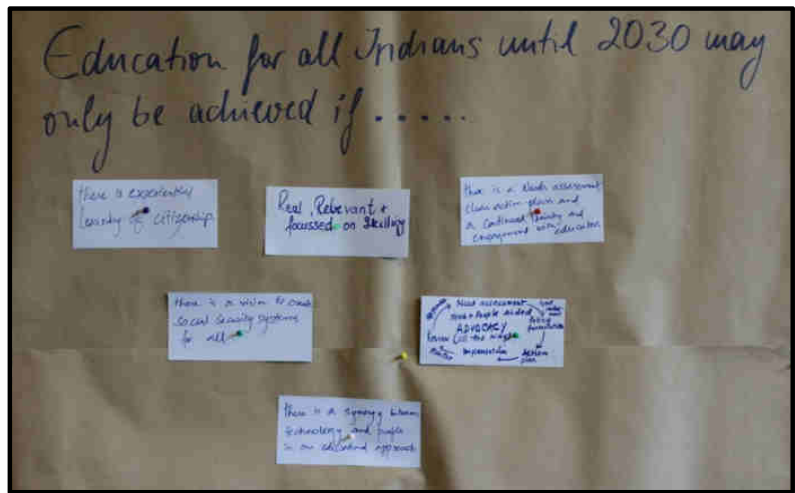 Education for all Indians until 2030 may
only be achieved if .....
there is experiential
Learning of citizenship
Real, Relevant +
focussed on Skilling
there is a Needs assessment
clear action plan and
a continued training and
engagement with educators
there is a vision to create
social security systems
for all
Need assessment
People Aided
ADVOCACY
Policy
formulation
Review (all the way)
Implementation
Action
plan
there is a synergy between
technology and people
in our educational approach